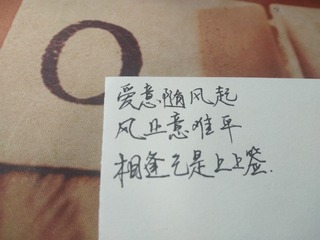 Q
爱意随风起
风止意难平
相逢乞是上上签.